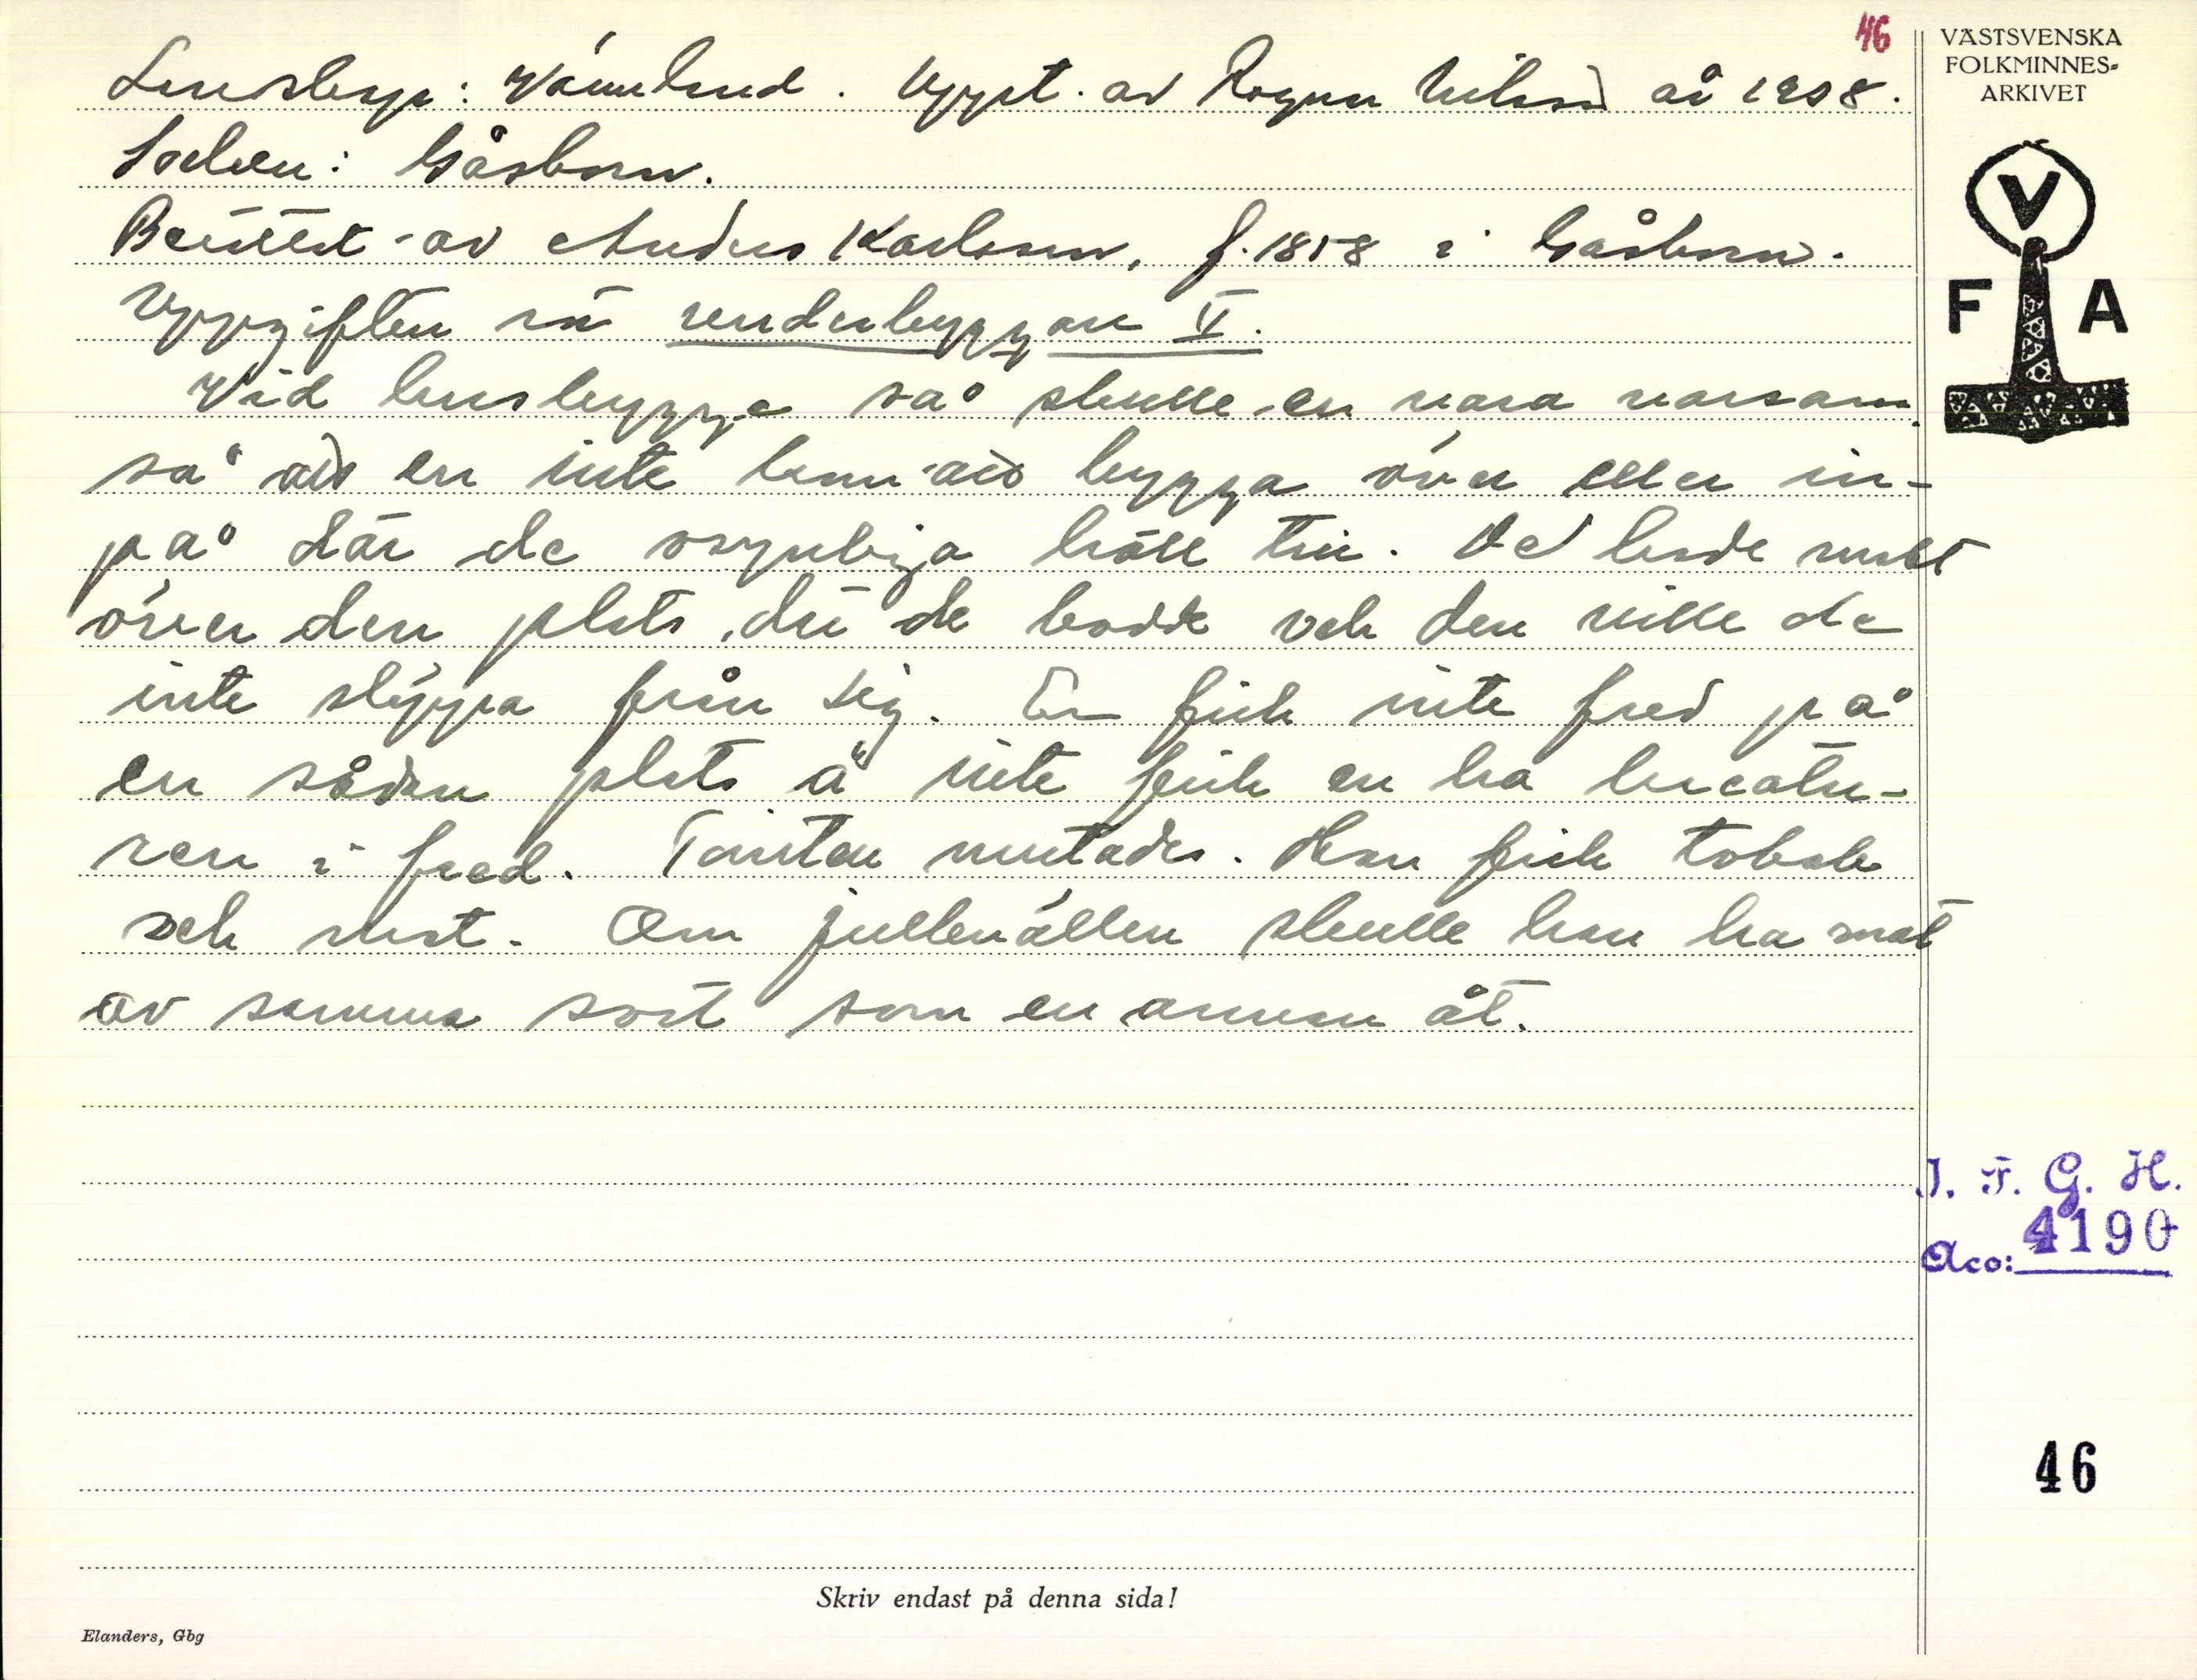 46
VÄSTSVENSKA
FOLKMINNES-
ARKIVET
Landskap: Värmland. Uppt. av Ragnar Nilsson år 1938.
Socken: Gåsborn.
Berättat av Anders Karlsson, f. 1858 i Gåsborn.
Uppgiften rör underbyggare V.
Vid husbygge så skulle en vara varsam
så att en inte kom att bygga över eller in-
på där de osynliga höll till. De rådde
över den plats, där de bodde och den ville de
inte släppa från sig. En fick inte fred på
en sådan plats å inte fick en ha kreatu-
ren i fred. Tomten mutades. Han fick tobak
och mat. Om julkvällen skulle han ha mat
av samma sort som en annan åt.
V
F A
I. F. G. H.
Acc: 4190
46
Skriv endast på denna sida!
Elanders, Gbg